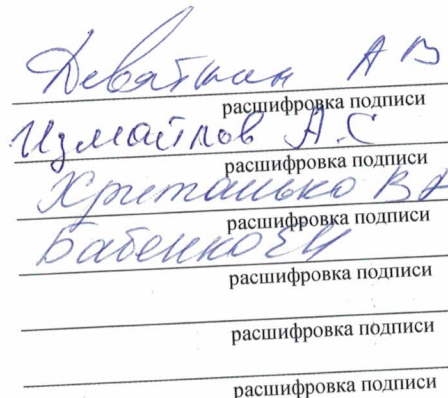 Девяткин А В
расшифровка подписи
Измайлов А.С
расшифровка подписи
В А
расшифровка подписи
Бабенко Е И
расшифровка подписи
расшифровка подписи
расшифровка подписи